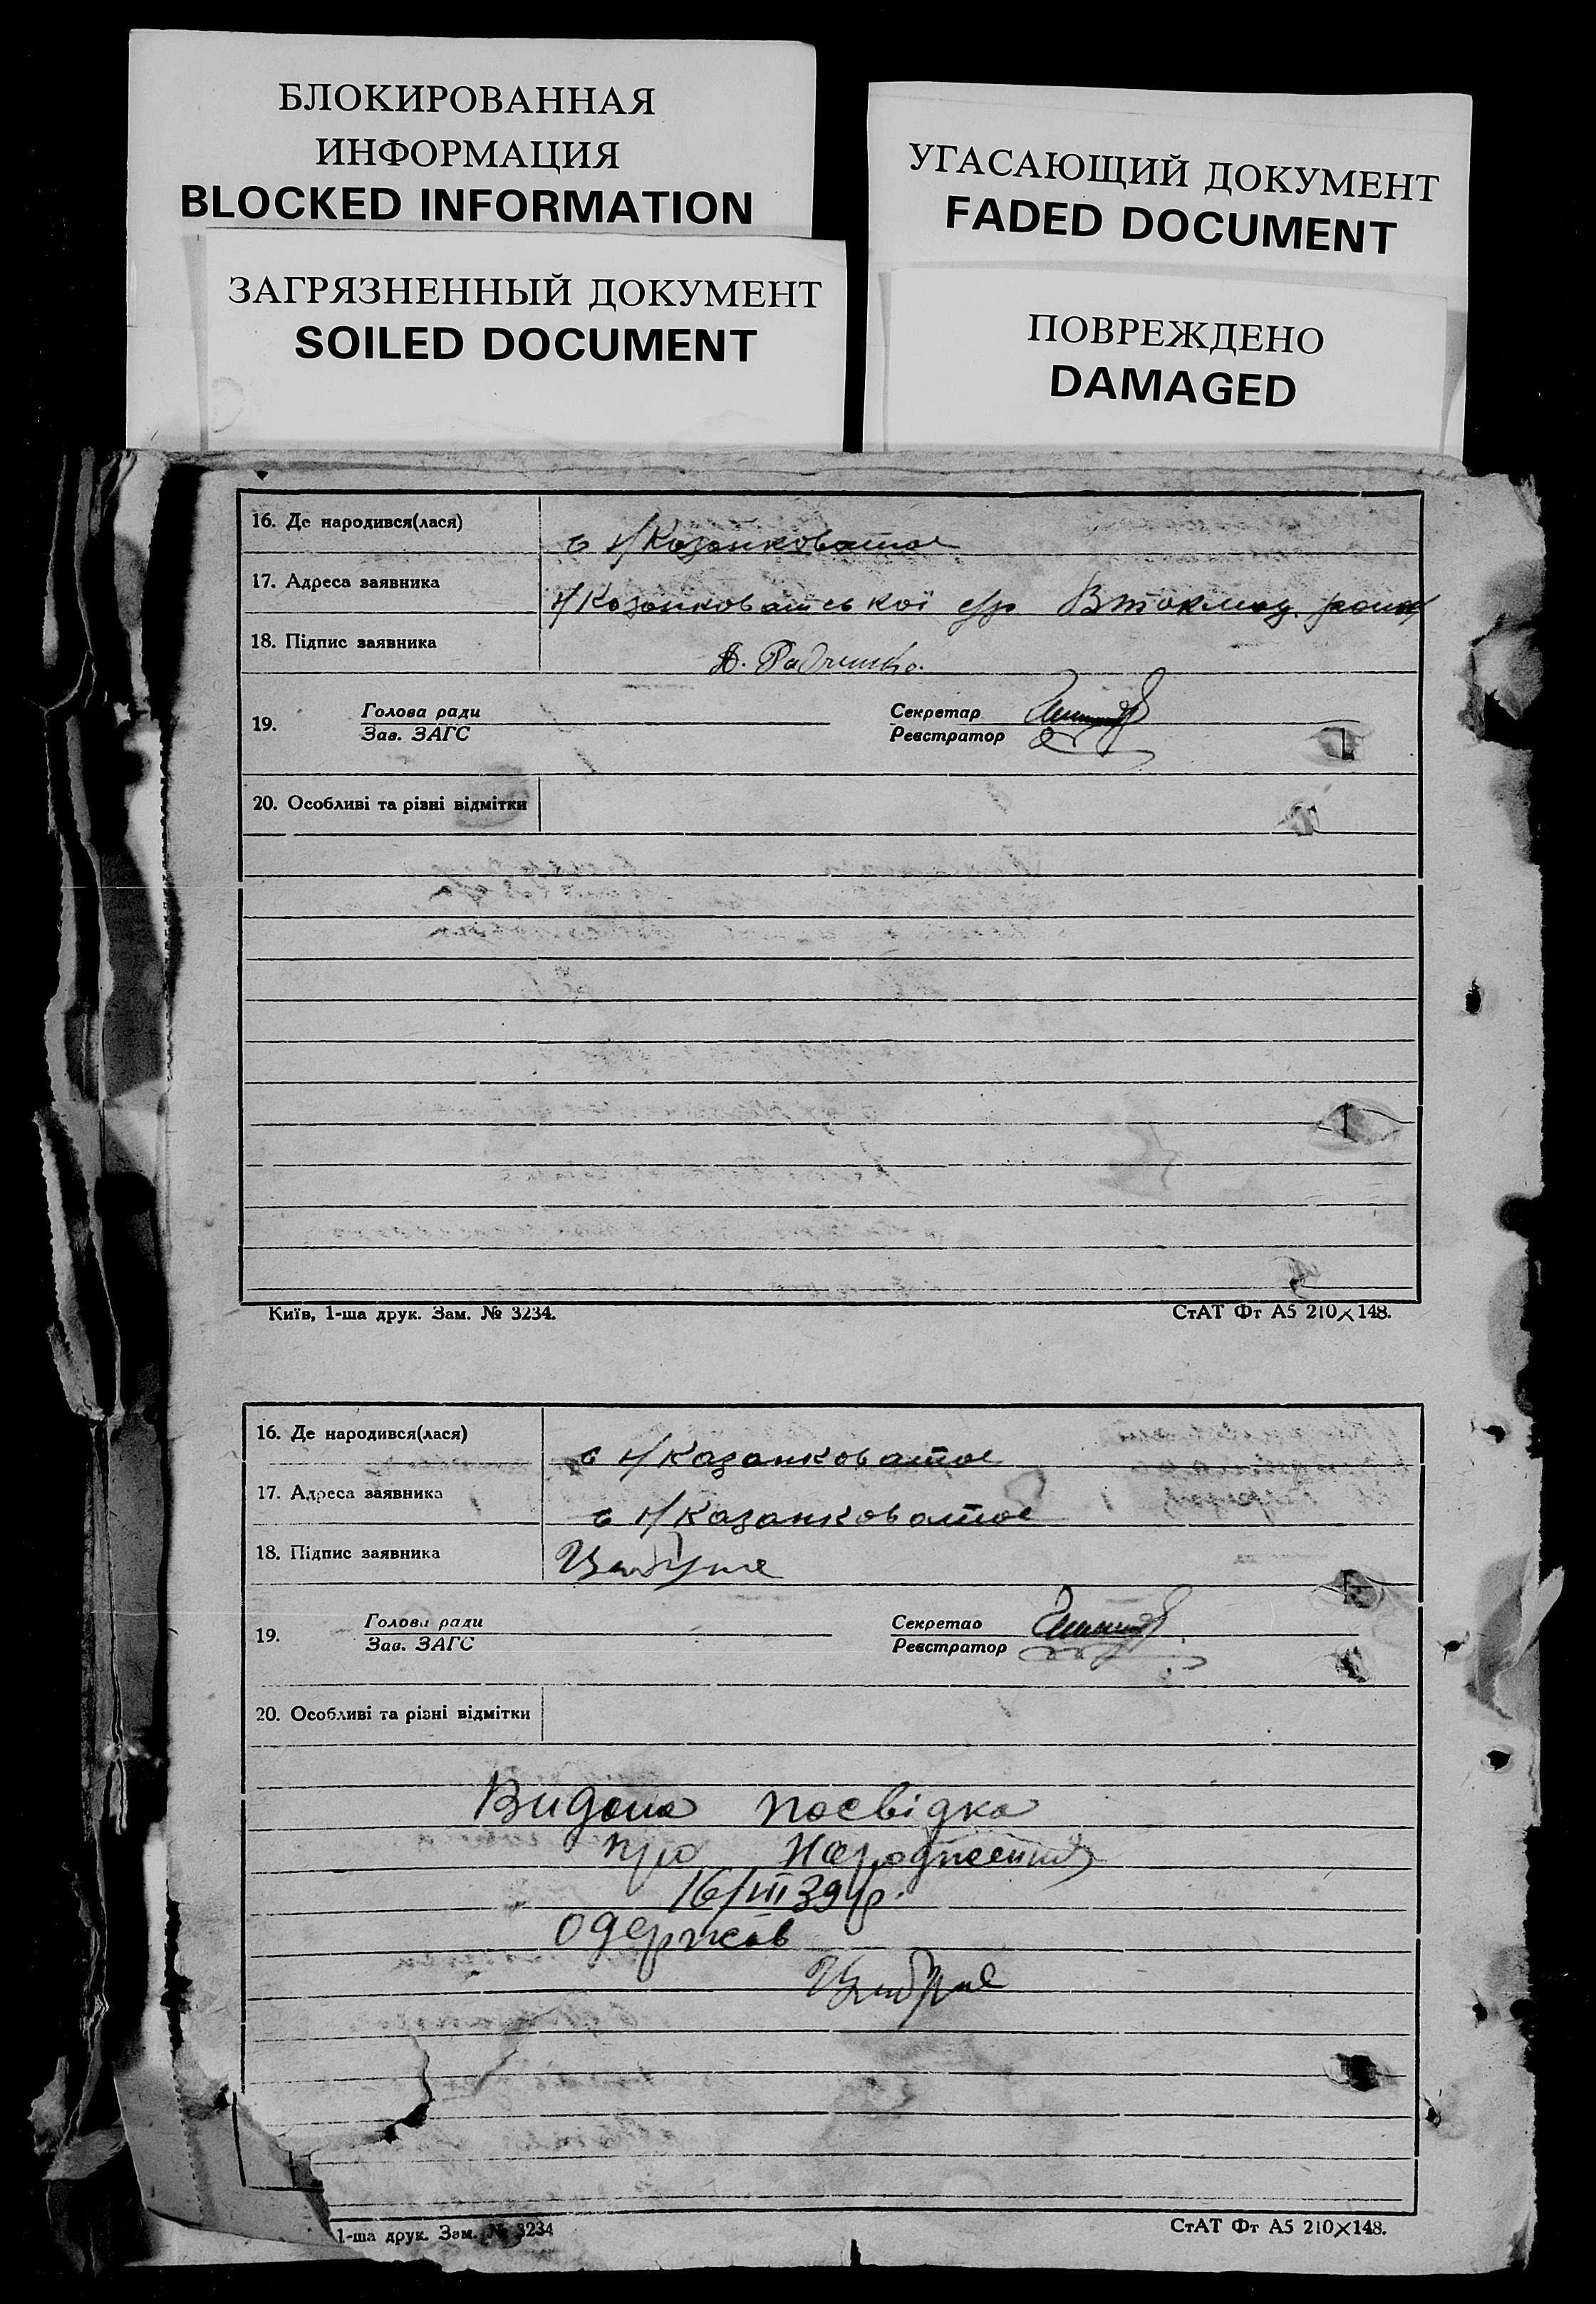 БЛОКИРОВАННАЯ
ИНФОРМАЦИЯ
BLOCKED INFORMATION
ЗАГРЯЗНЕННЫЙ ДОКУМЕНТ
SOILED DOCUMENT
УГАСАЮЩИЙ ДОКУМЕНТ
FADED DOCUMENT
ПОВРЕЖДЕНО
DAMAGED
16. Де народився(лася) с Н/Казанковатое
17. Адреса заявника Н/Козонковатської с/р Втокмац. район
18. Підпис заявника Радченко.
19. Голова ради
Зав. ЗАГС
Секретар
Реєстратор
20. Особливі та різні відмітки
Київ, 1-ша друк. Зам. № 3234. СтАТ Фт А5 210×148.
16. Де народився(лася) с Н/Казанковатое
17. Адреса заявника с Н/Казанковатое
18. Підпис заявника
19. Голова ради
Зав. ЗАГС
Секретар
Реєстратор
20. Особливі та різні відмітки
Видана посвідка
про народження
16/III 39 р.
одержав
1-ша друк. Зам. № 3234 СтАТ Фт А5 210×148.